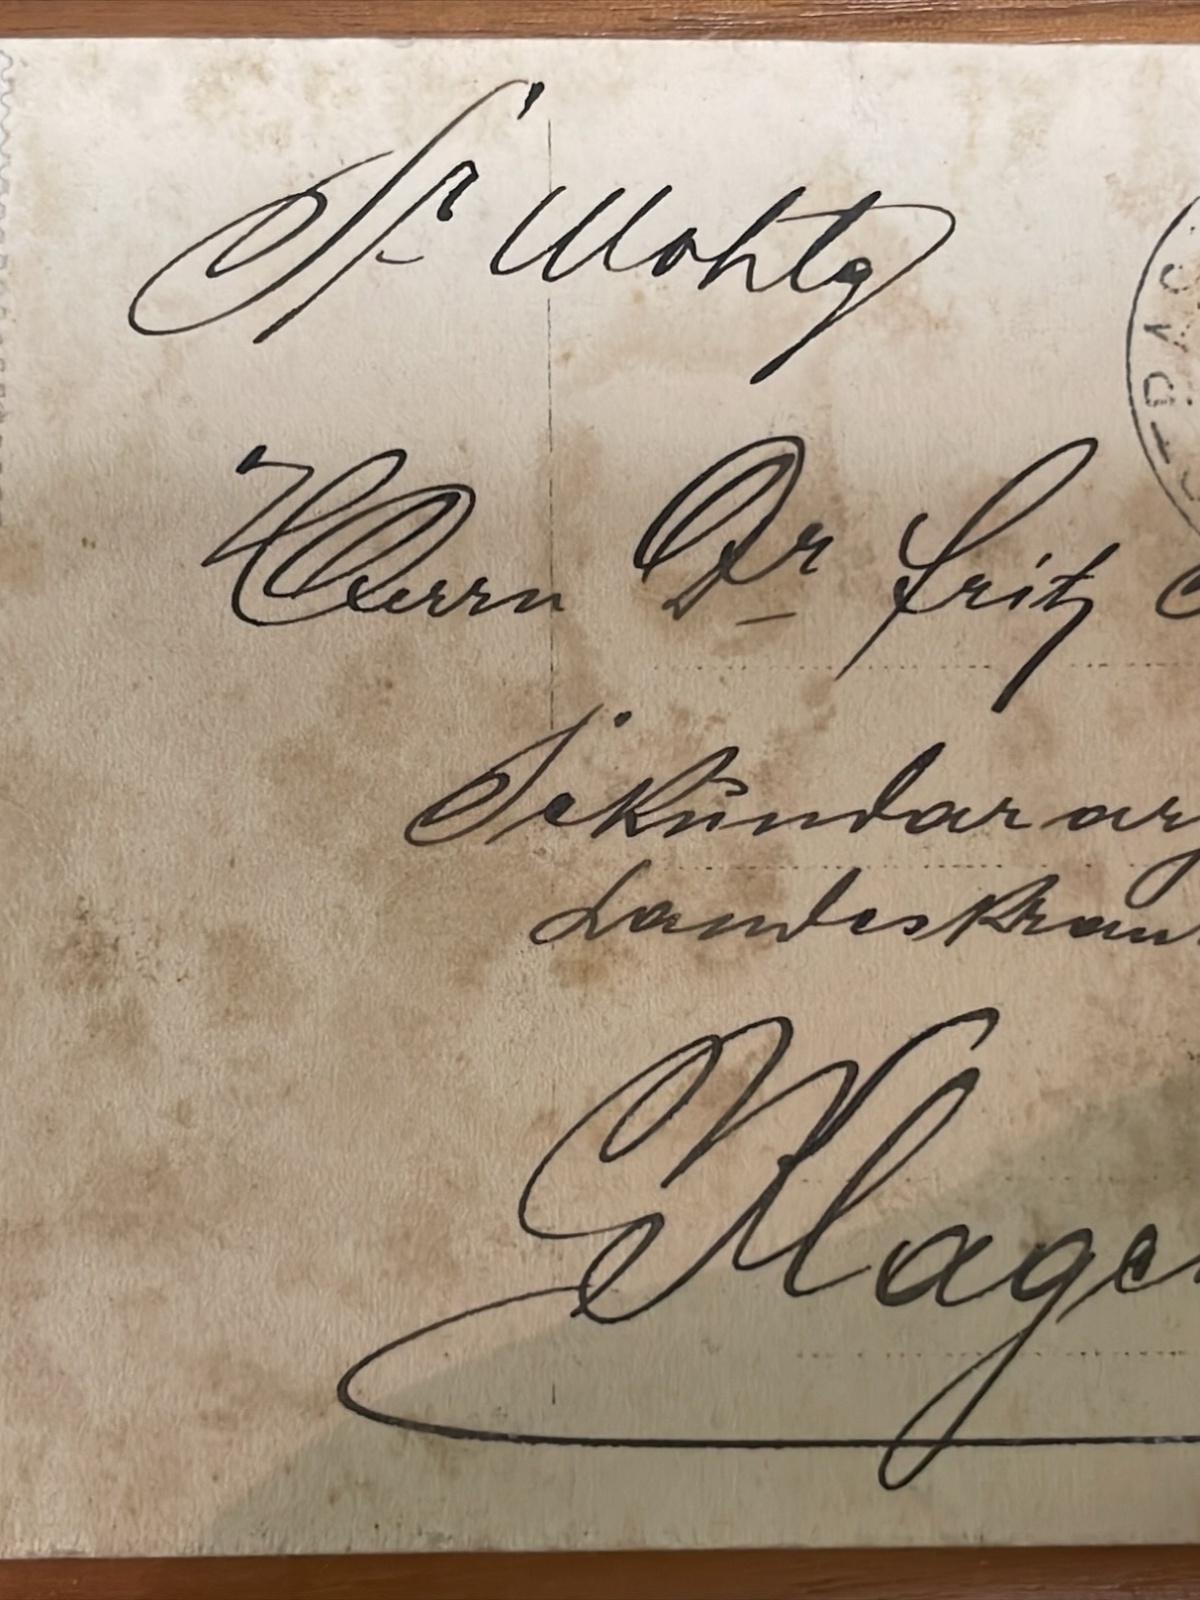 Sr Wohlg
Herrn Dr Fritz
Sekundararz
Landeskran
Klagen